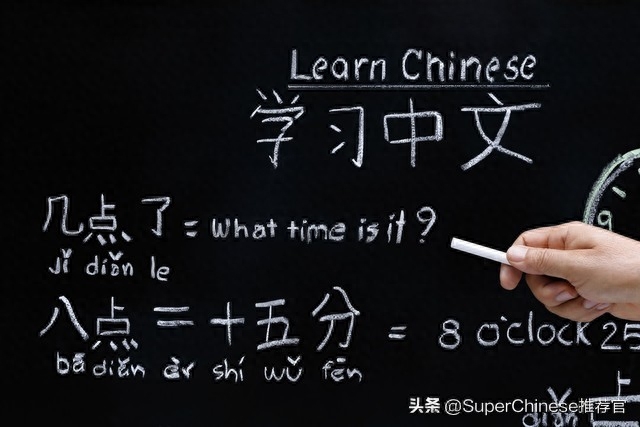 Learn Chinese
学习中文
几点了 = What time is it?
jǐ diǎn le
八点二十五分 = 8 o'clock 25
bā diǎn èr shí wǔ fēn
9
diǎn
头条 @SuperChinese推荐官